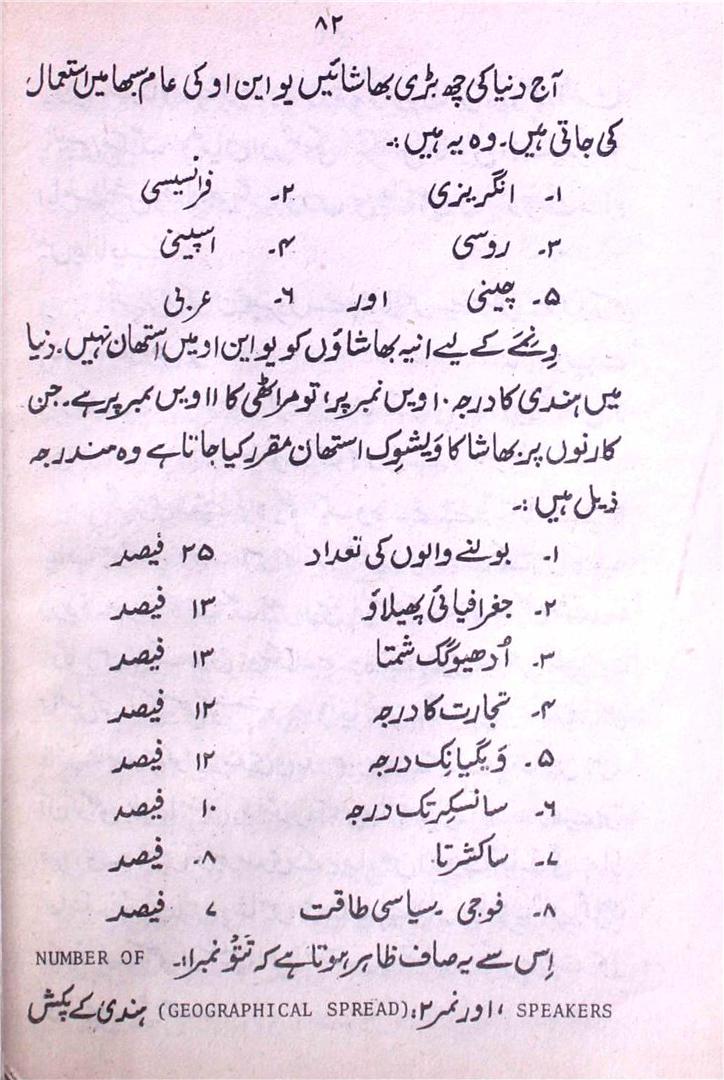 ۸۲
آج دنیا کی چھ بڑی بھاشائیں یو این او کی عام سبھا میں استعمال
کی جاتی ہیں۔ وہ یہ ہیں :۔
۱۔ انگریزی ۲۔ فرانسیسی
۳۔ روسی ۴۔ اسپینی
۵۔ چینی اور ۶۔ عربی
وِنَے کے لیے انیہ بھاشاؤں کو یو این او میں استھان نہیں۔ دنیا
میں ہندی کا درجہ ۱۰ ویں نمبر پر، تو مراٹھی کا ۱۱ ویں نمبر پر ہے۔ جن
کارنوں پر بھاشا کا وَیشوِک استھان مقرر کیا جاتا ہے وہ مندرجہ
ذیل ہیں :۔
۱۔ بولنے والوں کی تعداد ۲۵ فیصد
۲۔ جغرافیائی پھیلاؤ ۱۳ فیصد
۳۔ اُدھیوگِک شمتا ۱۳ فیصد
۴۔ تجارت کا درجہ ۱۲ فیصد
۵۔ وَیگیانِک درجہ ۱۲ فیصد
۶۔ سانسکرتک درجہ ۱۰ فیصد
۷۔ ساکشرتا ۰۸ فیصد
۸۔ فوجی ۔سیاسی طاقت ۷ فیصد
اِس سے یہ صاف ظاہر ہوتا ہے کہ تَتوُ نمبر ۱:۔ NUMBER OF
SPEAKERS ، اور نمبر ۲: (GEOGRAPHICAL SPREAD) ہندی کے پکش